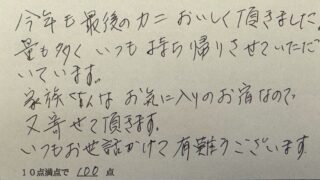 今年も最後のカニ おいしく頂きました。
量も多く いつも持ち帰りさせていただ
いています。
家族みんな お気に入りのお宿なので
又寄せて頂きます。
いつもお世話かけて 有難うございます
10点満点で 100 点